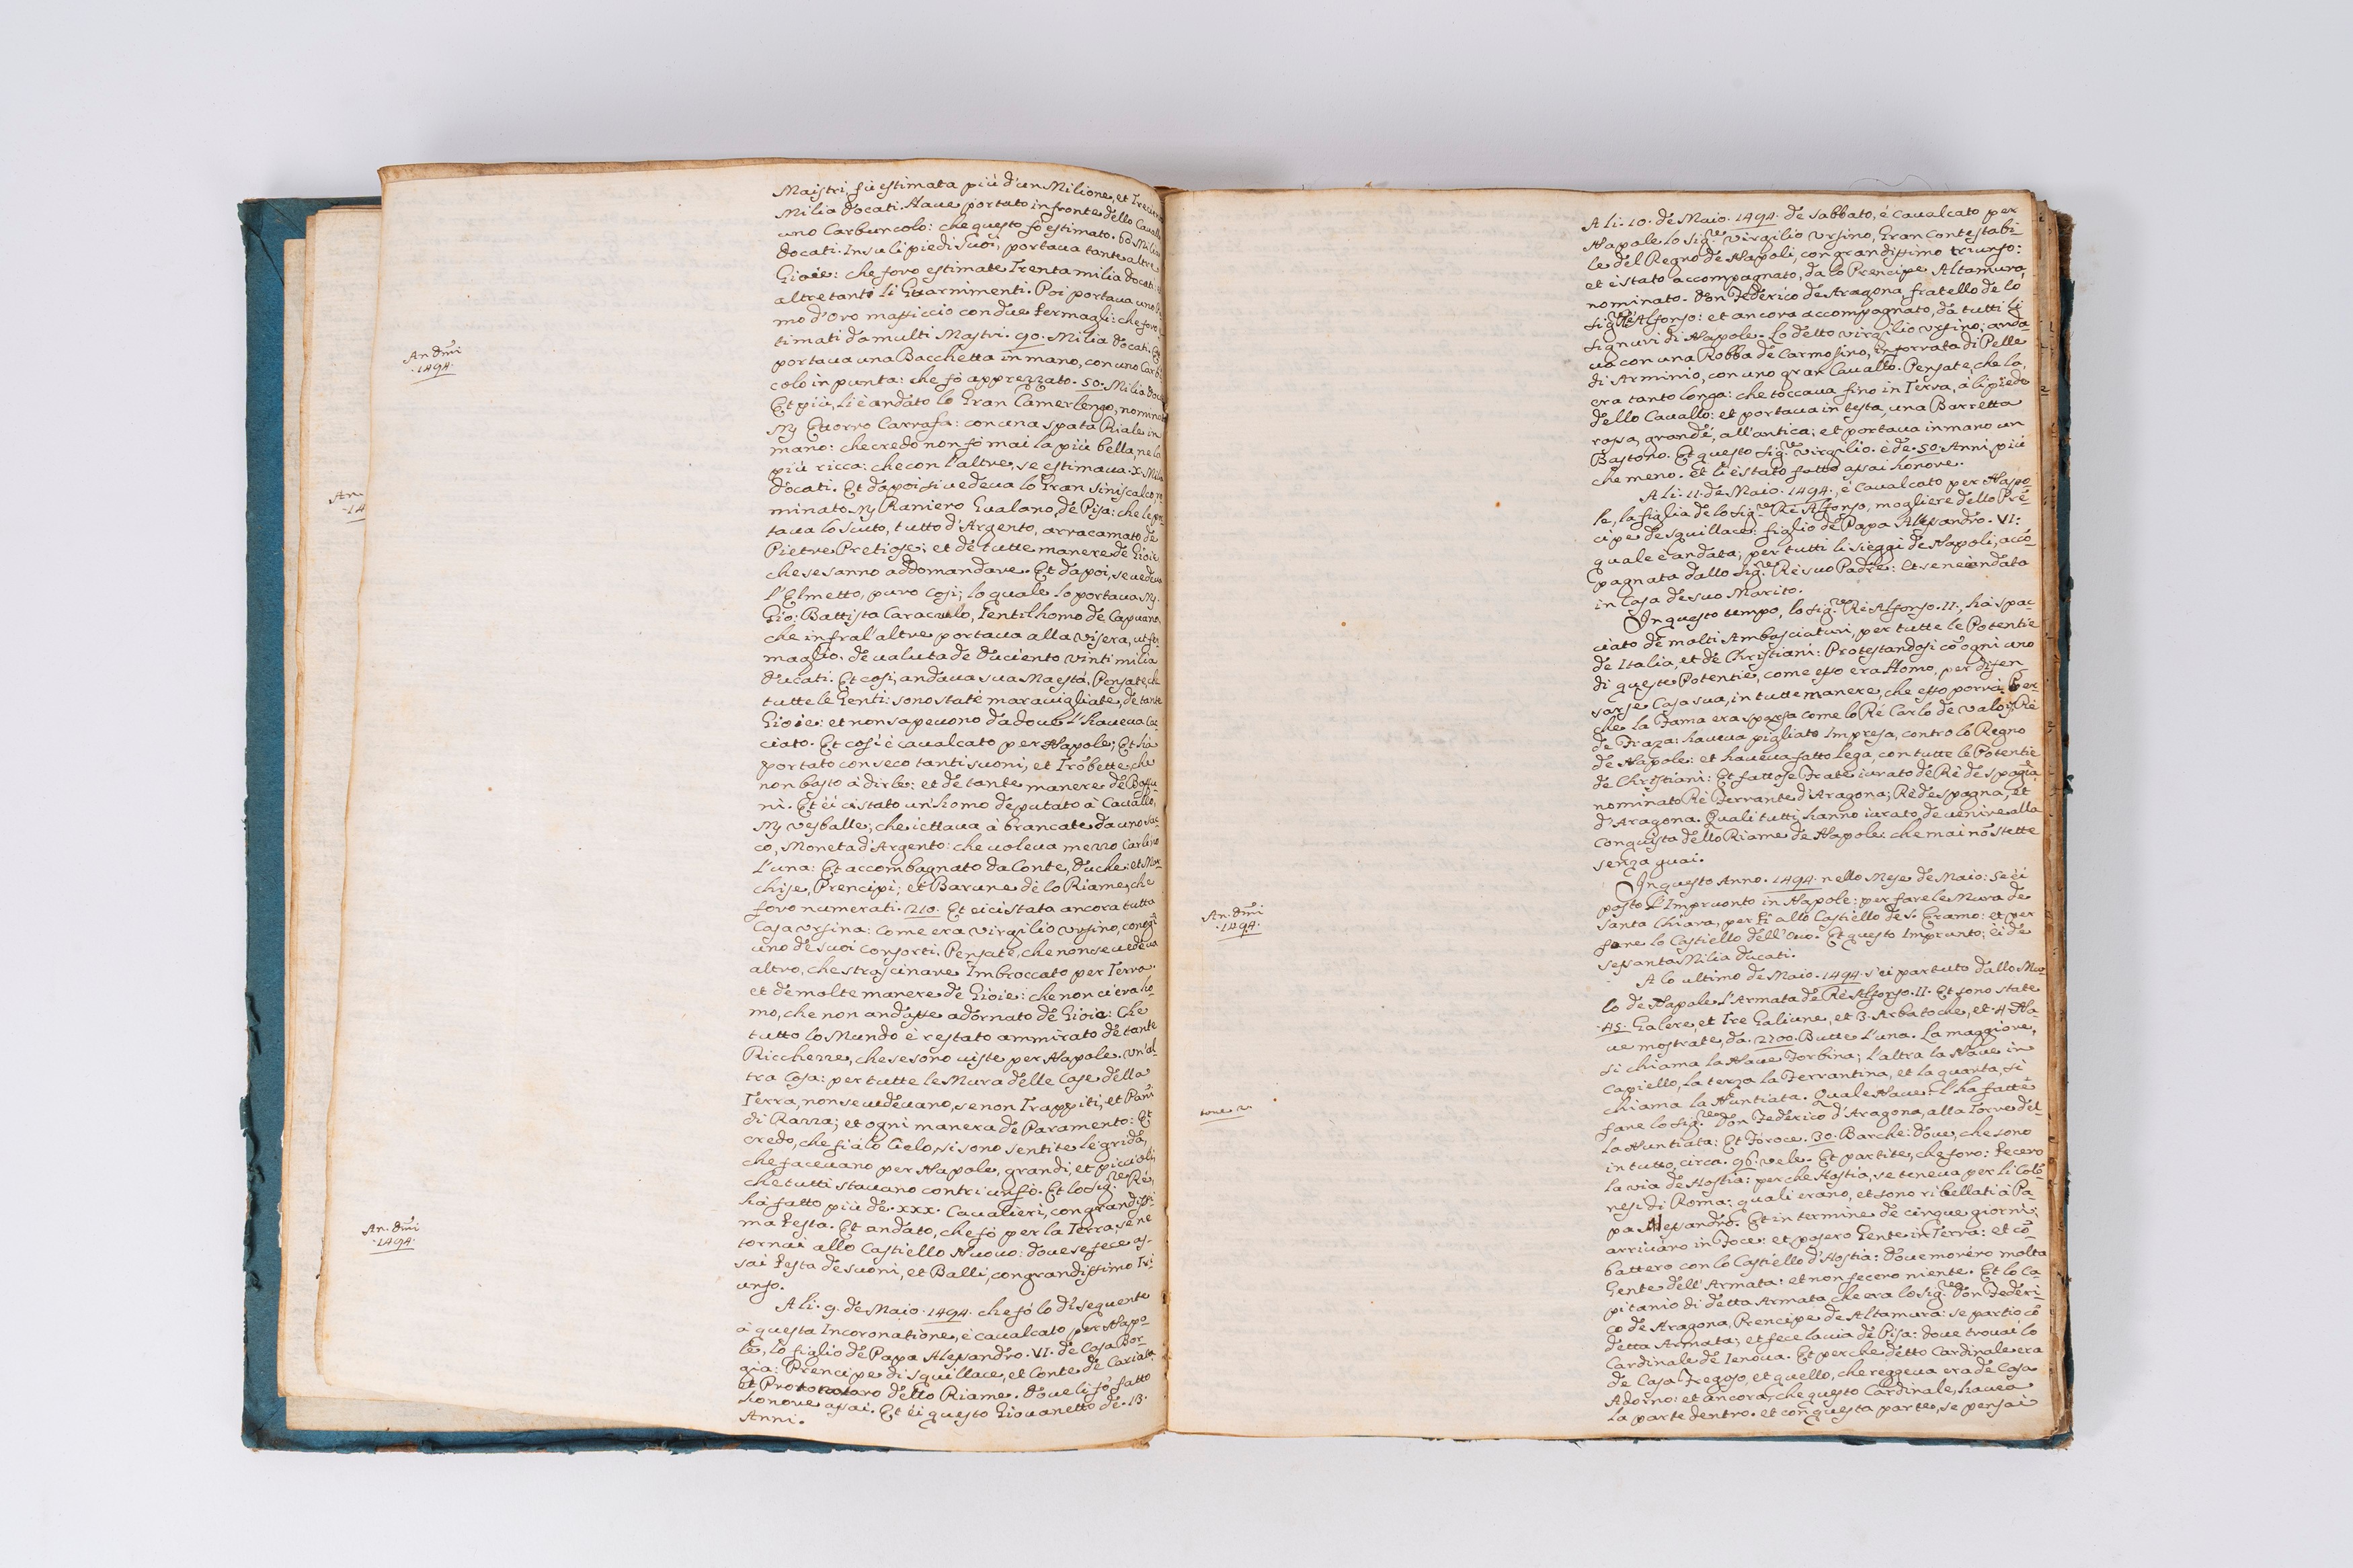 Maistri, fù estimata più d'un Milione, et Trecient
Milia docati. Haue portato in fronte dello Cauallo
uno Carbuncolo: che questo fò estimato. 60. Milia
docati. In su li piedi suoi, portaua tante altre
Gioie: che foro estimate Trenta milia docati:
altretanto li Guarnimenti. Poi portaua uno
mo d'oro massiccio con due fermagli: che foro
timati da multi Mastri. 90. Milia docati. Et
portaua una Bacchetta in mano, con uno Carb
colo in punta: che fò apprezzato. 50. Milia doca
Et più, li è andato lo Gran Camerlengo, nomina
An. dm̃i
1494.
Ettorro Carrafa: con una spata Riale in
mano: che credo non fò mai la più bella, ne la
più ricca: che con l'altre, se estimaua. X. Milia
docati. Et dapoi si uedeua lo Gran Siniscalco no
minato Raniero Gualano, de Pisa: che le por
taua lo Scuto, tutto d'Argento, arracamato de
Pietre Pretiose; et de tutte manere de Gioie
che se sanno addomandare. Et dapoi, se uedeua
l'Elmetto, puro cosi; lo quale lo portaua
Gio: Battista Caracculo, Gentilhomo de Capuana,
che infral'altre portaua alla visera, un fer
maglio, de ualuta de duciento vinti milia
ducati. Et cosi, andaua sua Maestà. Pensate, che
tutte le Genti: sono state marauigliate, de tante
Gioie: et non sapeuono da doue l'haueua cac
ciato. Et cosi è caualcato per Napole; Et hà
portato con seco tanti suoni, et Trõbette, che
non basto à dirle: et de tante manere de Baffu
ni. Et ci è stato un'homo deputato à Cauallo,
Vesballe; che iettaua à brancate da uno sac
co, Moneta d'Argento: che uoleua mezzo Carlino
l'una: Et accombagnato da Conte, Duche: et Mar
chise, Prencipi; et Barune de lo Riame, che
foro numerati. 210. Et ei ci stata ancora tutta
Casa Vrsina: come era Virgilio Vrsino, con ogn'
uno de suoi consorti. Pensate, che non se uedeua
altro, che strascinare Imbroccato per Terra,
et de molte manere de Gioie: che non ci era ho-
mo, che non andasse adornato de Gioie: Che
tutto lo Mundo è restato ammirato de tante
Ricchezze, che se sono uiste per Napole. Vn'al-
tra cosa: per tutte le Mura delle Case della
Terra, non se uedeuano, se non Trappiti, et Panni
di Razza; et ogni manera de Paramento: Et
credo, che fi à lo Cielo, si sono sentite le grida,
che faceuano per Napole, grandi, et piccioli,
che tutti stauano con triunfo. Et lo Sig.re Rè,
hà fatto più de. XXX. Cauallieri, con grandissi-
ma festa. Et andato, che fò per la Terra, se ne
An. dm̃i
1494.
tornai allo Castiello Nuouo: doue se fece as-
sai festa de suoni, et Balli, con grandissimo Tri-
unfo.
A li. 9. de Maio. 1494. che fò lo dì sequente
à questa Incoronatione, è caualcato per Napo-
le, lo figlio de Papa Alesandro. VI. de Casa Bor-
gia: Prencipe di Squillace, et Conte de Cariata
et Protonotaro dello Riame. Doue li fò fatto
honore assai. Et èi questo Giouanetto de. 13.
Anni.
A li. 10. de Maio. 1494. de Sabbato, è caualcato per
Napole lo Sig.re Virgilio Vrsino, Gran Contestabi-
le del Regno de Napoli, con grandissimo triunfo:
et è stato accompagnato, da lo Prencipe Altamura,
nominato. Don Federico de Aragona, fratello de lo
Sig.re Rè Alfonso: et ancora accompagnato, da tutti li
Signuri di Napole. Lo detto Virgilio Vrsino; anda-
ua con una Robba de Carmosino, Enforrata di Pelle
di Arminio, con uno gran Cauallo. Pensate, che la,
era tanto longa: che toccaua fino in Terra, à li piede
dello Cauallo: et portaua in testa, una Barretta
rossa, grande, all'antica; et portaua in mano un
Bastone. Et questo Sig.re Virgilio. è de. 50. Anni più
che meno. et li è stato fatto assai honore.
A li. 11. de Maio. 1494., è caualcato per Napo-
le, la figlia de lo Sig.re Rè Alfonso, mogliere dello Prē-
cipe de Squillace: figlio de Papa Alesandro. VI:
quale è andata; per tutti li sieggi de Napoli, accõ-
pagnata dallo Sig.re Rè suo Padre: Et se ne è andata
in Casa de suo Marito.
In questo tempo, lo Sig.re Rè Alfonso. II., hà spac-
ciato de molti Ambasciaturi, per tutte le Potentie
de Italia, et de Christiani: Protestandosi cõ ogni uno
di queste Potentie, come esso era Homo, per difen
sarse Casa sua, in tutte manere, che esso porrà. Per-
che la Fama era sparsa come lo Rè Carlo de Valoys, Rè
de Franza: haueua pigliato Impresa, contro lo Regno
de Napole: et haueua fatto lega, con tutte le Potentie
de Christiani: Et fattose Frate iurato de Rè de Spagña,
nominato Rè Ferrante d'Aragona; Rè de Spagna, et
d'Aragona. Quali tutti hanno iurato, de uenire alla
conquista dello Riame de Napole: che mai nõ stette
senza guai.
In questo Anno. 1494. nello Mese de Maio: se èi
An. dm̃i
1494.
posto l'Impruonto in Napole: per fare le Mura de
Santa Chiara, per fì allo Castiello de S. Eramo: et per
fare lo Castiello dell'Ouo. Et questo Imprunto; èi de
sessanta Milia ducati.
A lo ultimo de Maio. 1494. s'èi partuto dallo Mo-
lo de Napole l'Armata de Rè Alfonso. II. Et sono state
.45. Galere, et Tre Galiune, et 3. Arbatoche, et. 4. Na-
ue mostrate, da. 2700. Butte l'una. La maggiore,
si chiama la Naue Forbina; l'altra la Naue in
Capiello, la terza la Ferrantina, et la quarta, si
chiama la Nuntiata. Quale Naue: l'ha fatte
fare lo Sig.re Don Federico d'Aragona, alla Torre del-
la Nuntiata: Et foroce. 30. Barche: doue, che sono
in tutto, circa. 96. vele. Et partite, che foro: fecero
la via de Hostia: perche Hostia, se teneua per li Colõ-
nesi di Roma: quali erano, et sono ribellati à Pa-
pa Alesandro. Et in termine de cinque giorni;
arriuaro in Foce: et posero Gente in Terra: et cõ-
battero con lo Castiello d'Hostia: doue morèro molta
Gente dell'Armata: et non fecero niente. Et lo Ca-
pitanio di detta Armata, che era lo Sig.re Don Federi-
co de Aragona, Prencipe de Altamura: se partio cõ
detta Armata; et fece la uia de Pisa: doue trouai lo
Cardinale de Ienoua. Et perche detto Cardinale era
de Casa Fregoso, et quello, che reggeua era de Casa
Adorno: et ancora, che questo Cardinale, hauea
la parte dentro. et con questa parte, se pensai